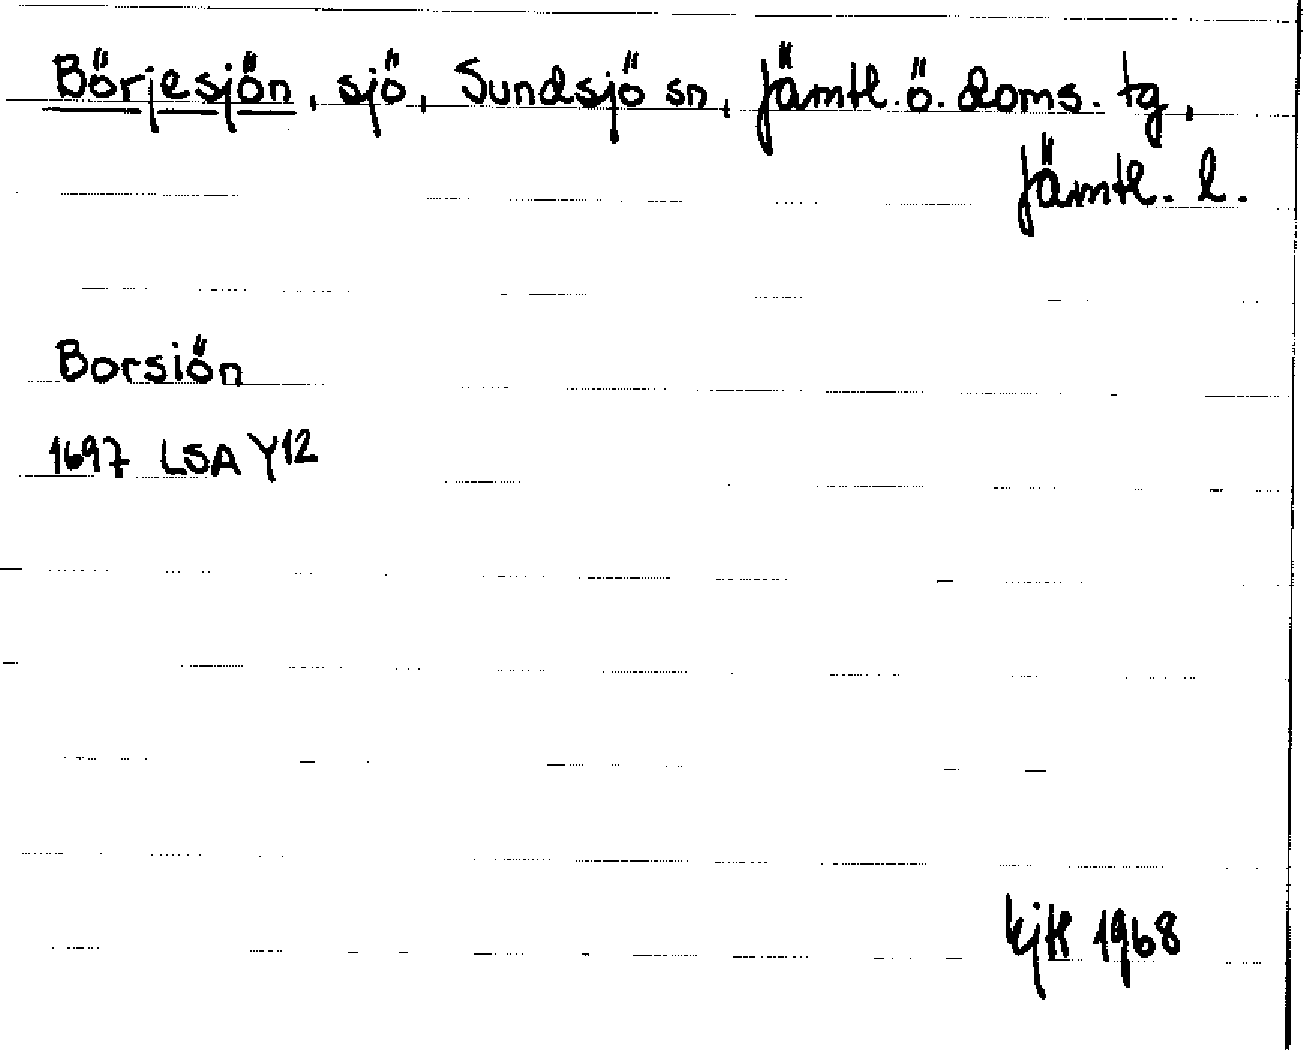 Börjesjön, sjö, Sundsjö sn, Jämtl. ö. doms. tg,
Jämtl. l.
Borsiön
1697 LSA Y12
1968